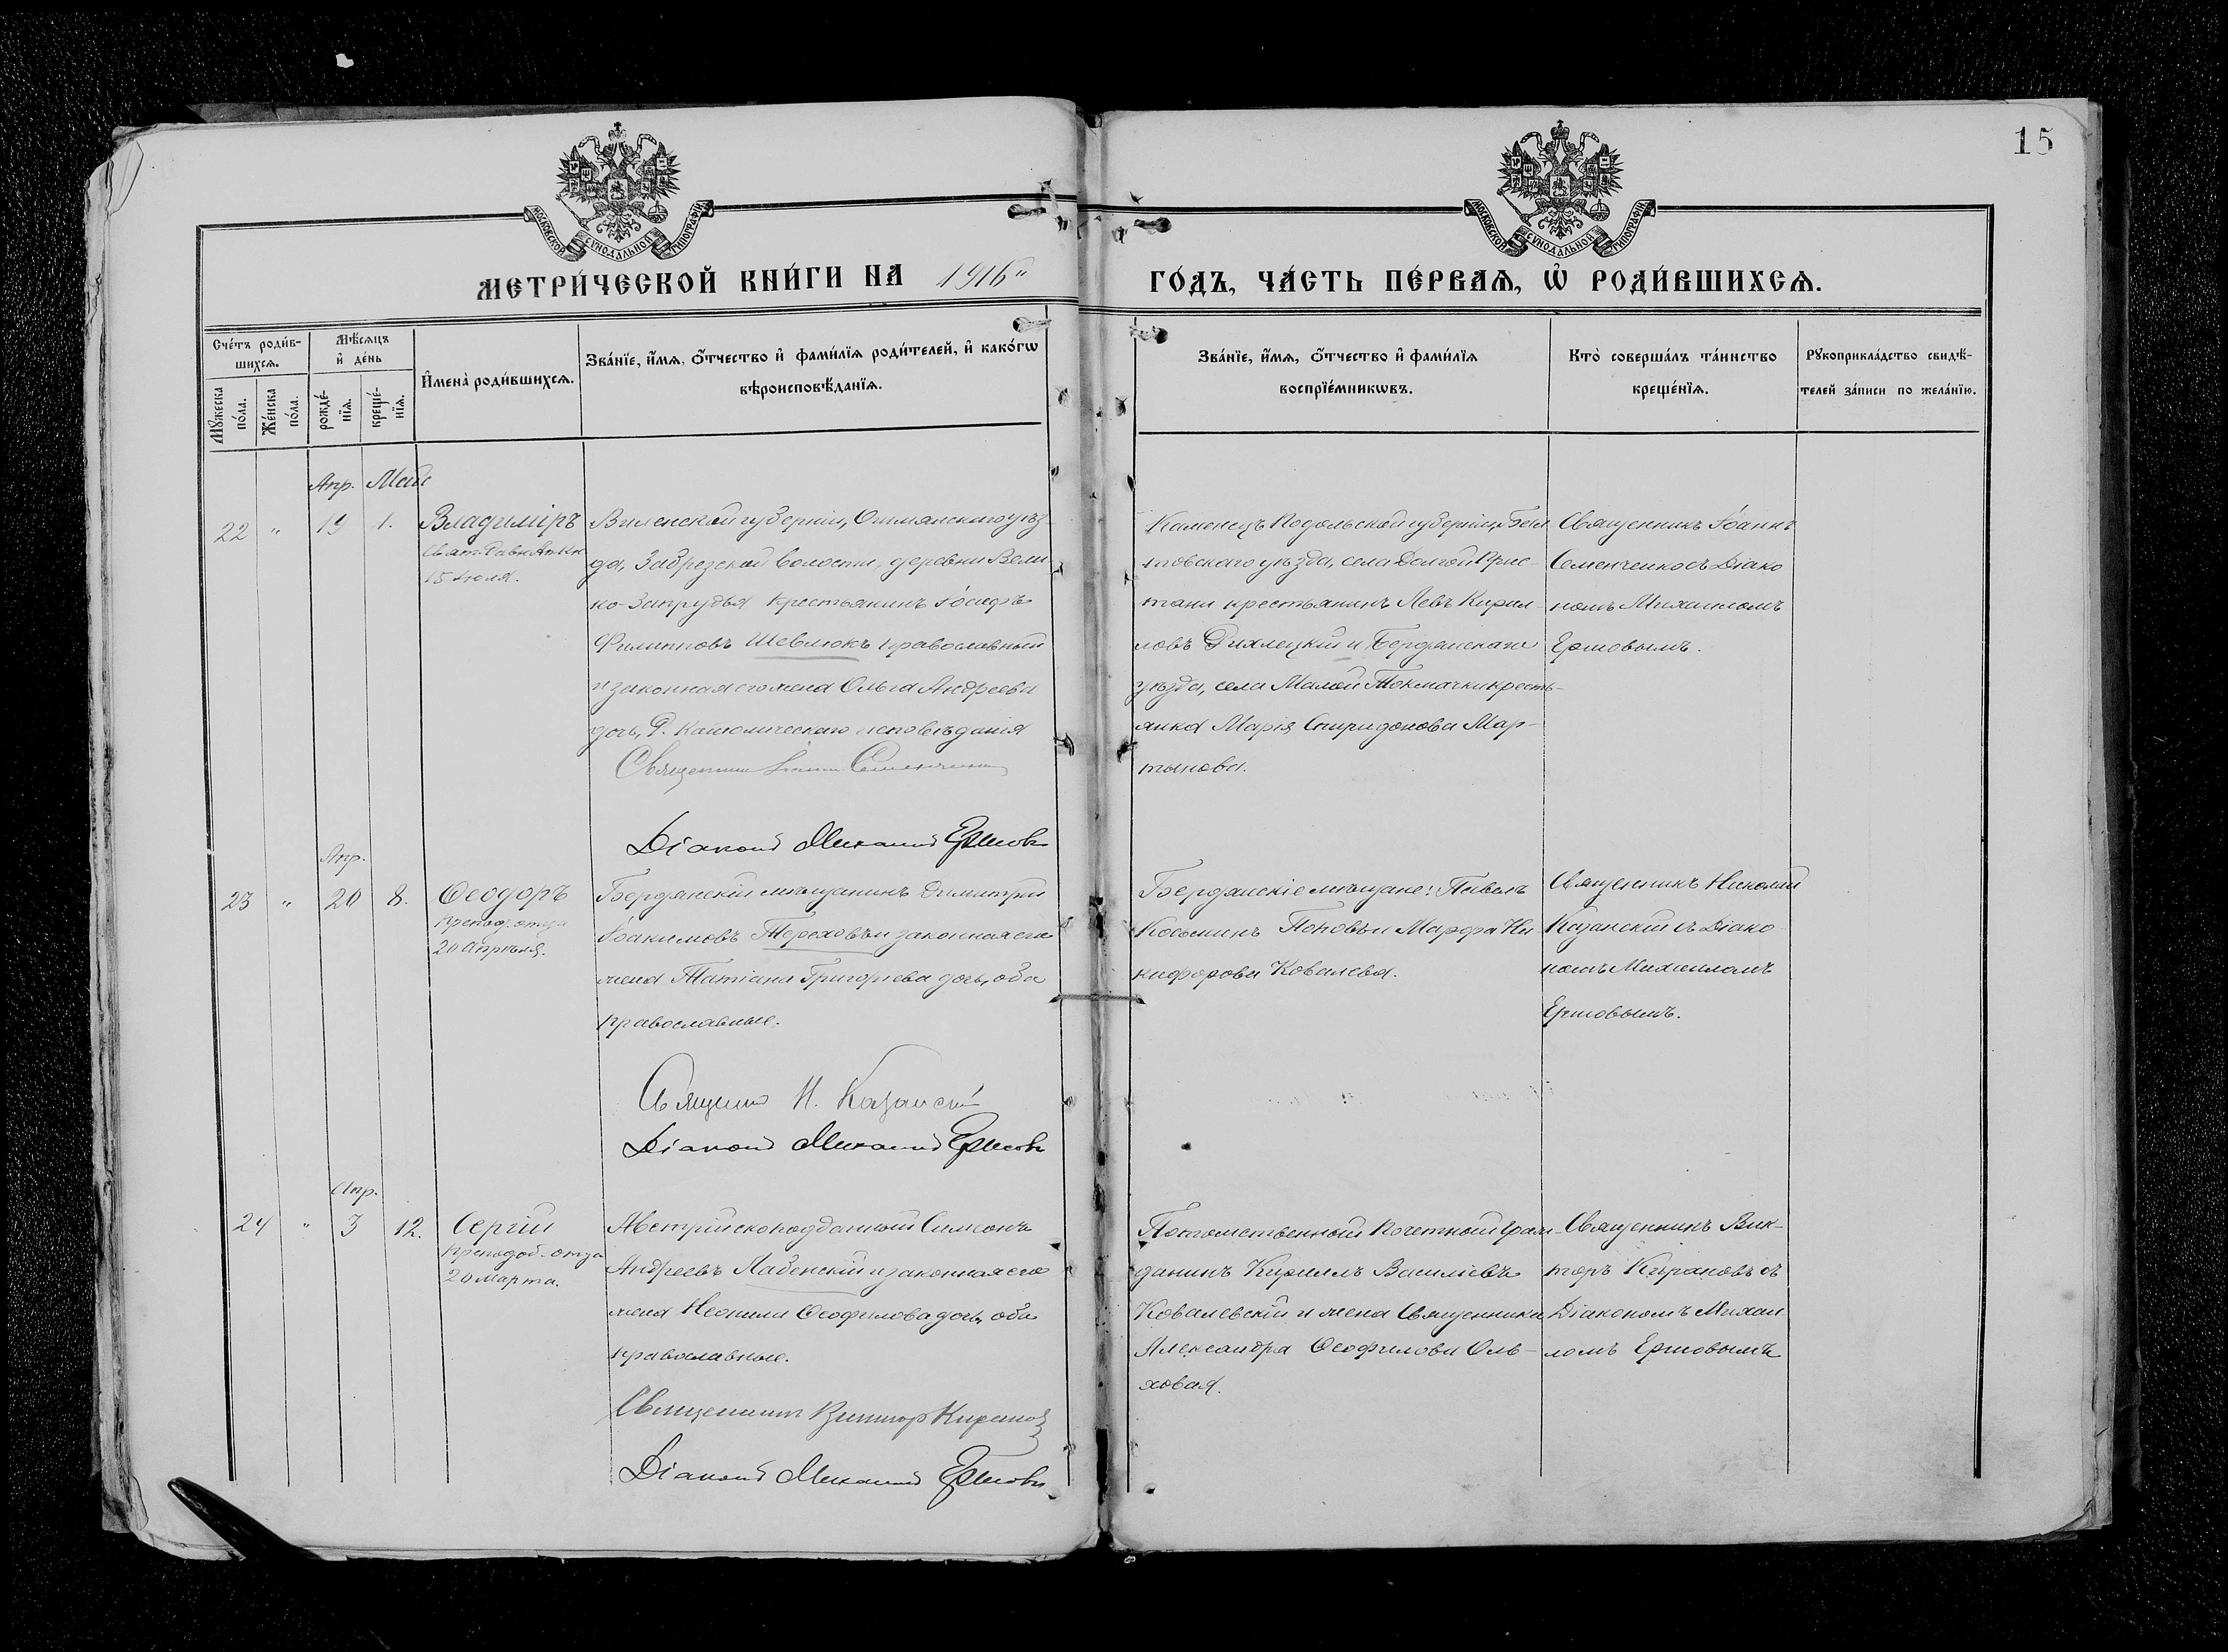 15
МОСКОВСКОЙ СѴНОДАЛЬНОЙ ТИПОГРАФІИ
МОСКОВСКОЙ СѴНОДАЛЬНОЙ ТИПОГРАФІИ
МЕТРИ́ЧЕСКОЙ КНИ́ГИ НА 1916
ГО́ДЪ, ЧА́СТЬ ПЕ́РВАѦ, Ѡ РОДИ́ВШИХСѦ.
Сче́тъ роди́в-
шихсѧ.
Мѣ́сяцъ
и҆ де́нь
Мꙋ́жеска
по́ла.
Же́нска
по́ла.
рожде́-
нїѧ.
креще́-
нїѧ.
И҆мена̀ роди́вшихсѧ.
Зва́нїе, и҆́мѧ, о҆́тчество и҆ фами́лїѧ роди́телей, и҆ како́гѡ
вѣроисповѣ́данїѧ.
Зва́нїе, и҆́мѧ, о҆́тчество и҆ фами́лїѧ
воспрїе́мникѡвъ.
Кто̀ соверша́лъ та́инство
креще́нїѧ.
Рꙋкоприкла́дство свидѣ́-
телей за́писи по жела́нїю.
Апр. Май
22 " 19 1. Владиміръ
Св. Равн. Ап. Кн.
15 Іюля.
Виленской губерніи, Ошмянскаго уѣз-
да, Забрезской волости, деревни Вели-
ко-Запрудья крестьянинъ Іосифъ
Филипповъ Шевлюкъ православный
и законная его жена Ольга Андреева
дочь, Р. Католическаго исповѣданія
Священникъ Іоаннъ Семенченко
Діаконъ Михаилъ Ершовъ
Каменецъ Подольской губерніи,
уѣзда, села Долгой При-
стани крестьянинъ Левъ Кирил-
ловъ Дихлецкій и Бердянскаго
уѣзда, села Малой Токмачки кресть-
янка Марія Спиридонова Мар-
тынова.
Священникъ Іоаннъ
Семенченко съ Діако
номъ Михаиломъ
Ершовымъ.
Апр.
23 " 20 8. Ѳеодоръ
Препод. отца
20 Апрѣля.
Бердянскій мѣщанинъ Димитрій
Іоакимовъ Тереховъ и законная его
жена Татіана Григорьева дочь, оба
православные.
Священникъ Н. Казанскій
Діаконъ Михаилъ Ершовъ
Бердянскіе мѣщане: Павелъ
Косьминъ Поповъ и Марфа Ни
кифорова Ковалева.
Священникъ Николай
Казанскій съ Діако
номъ Михаиломъ
Ершовымъ.
Апр.
24 " 3 12. Сергій
Преподоб. отца
20 Марта.
Австрійскоподданный Симеонъ
Андреевъ Лабенскій и законная его
жена Неонила Ѳеофилова дочь, оба
православные.
Священникъ Викторъ Кирановъ
Діаконъ Михаилъ Ершовъ
Потомственный Почетный Граж-
данинъ Кириллъ Васильевъ
Ковалевскій и жена Священника
Александра Ѳеофилова Оль-
ховая.
Священникъ Вик-
торъ Кирановъ съ
Діакономъ Михаи
ломъ Ершовымъ